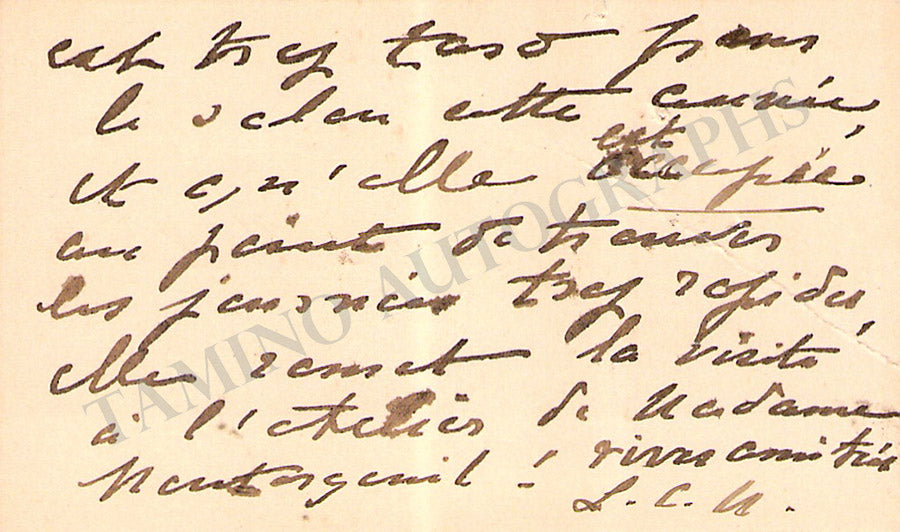 est trop tard pour
le salon cette année,
et qu'elle est occupée
au point de trouver
les journées trop rapides,
elle remet la visite
à l'atelier de Madame
! vives amitiés
L. C. M.
TAMINO AUTOGRAPHS